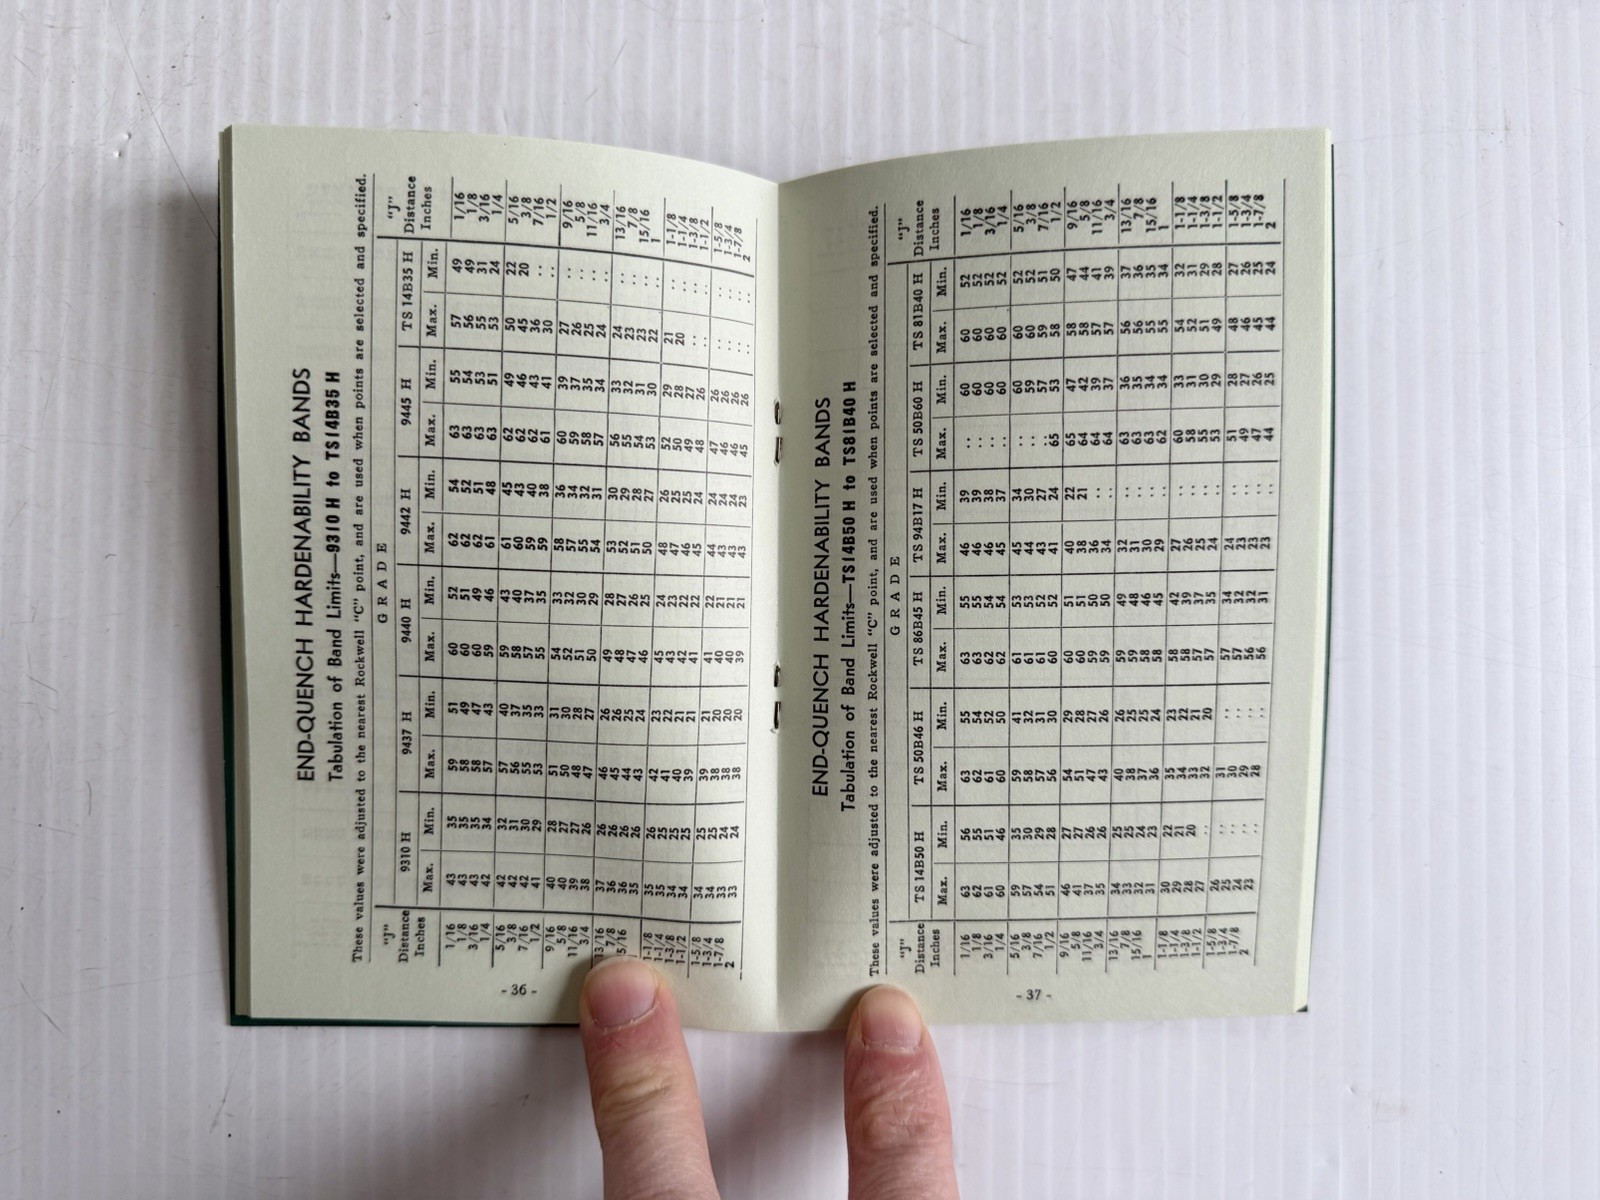 END-QUENCH HARDENABILITY BANDS
Tabulation of Band Limits—9310 H to TS14B35 H
These values were adjusted to the nearest Rockwell "C" point, and are used when points are selected and specified.
GRADE
"J" Distance Inches 9310 H 9437 H 9440 H 9442 H 9445 H TS 14B35 H "J" Distance Inches
Max. Min. Max. Min. Max. Min. Max. Min. Max. Min. Max. Min.
1/16 43 35 59 51 60 52 62 54 63 55 57 49 1/16
1/8 43 35 58 49 60 51 62 52 63 54 56 49 1/8
3/16 43 35 58 47 60 49 62 51 63 53 55 31 3/16
1/4 42 34 57 43 59 46 61 48 63 51 53 24 1/4
5/16 42 32 57 40 59 43 61 45 62 49 50 22 5/16
3/8 42 31 56 37 58 40 60 43 62 46 45 20 3/8
7/16 42 30 55 35 57 37 59 40 62 43 36 .. 7/16
1/2 41 29 53 33 55 35 59 38 61 41 30 .. 1/2
9/16 40 28 51 31 54 33 58 36 60 39 27 .. 9/16
5/8 40 27 50 30 52 32 57 34 59 37 26 .. 5/8
11/16 39 27 48 28 51 30 55 32 58 35 25 .. 11/16
3/4 38 26 47 27 50 29 54 31 57 34 24 .. 3/4
13/16 37 26 46 26 49 28 53 30 56 33 24 .. 13/16
7/8 36 26 45 26 48 27 52 29 55 32 23 .. 7/8
5/16 36 26 44 25 47 26 51 28 54 31 23 .. 15/16
35 26 43 24 46 25 50 27 53 30 22 .. 1
1-1/8 35 26 42 23 45 24 48 26 52 29 21 .. 1-1/8
1-1/4 35 25 41 22 43 23 47 25 50 28 20 .. 1-1/4
1-3/8 34 25 40 21 42 22 46 25 49 27 .. .. 1-3/8
1-1/2 34 25 39 21 41 22 45 24 48 26 .. .. 1-1/2
1-5/8 34 25 39 21 41 22 44 24 47 26 .. .. 1-5/8
1-3/4 34 25 38 20 40 21 43 24 46 26 .. .. 1-3/4
1-7/8 33 24 38 20 40 21 43 24 46 26 .. .. 1-7/8
2 33 24 38 20 39 21 43 23 45 26 .. .. 2
- 36 -
END-QUENCH HARDENABILITY BANDS
Tabulation of Band Limits—TS14B50 H to TS81B40 H
These values were adjusted to the nearest Rockwell "C" point, and are used when points are selected and specified.
GRADE
"J" Distance Inches TS 14B50 H TS 50B46 H TS 86B45 H TS 94B17 H TS 50B60 H TS 81B40 H "J" Distance Inches
Max. Min. Max. Min. Max. Min. Max. Min. Max. Min. Max. Min.
1/16 63 56 63 55 63 55 46 39 .. 60 60 52 1/16
1/8 62 55 62 54 63 55 46 39 .. 60 60 52 1/8
3/16 61 51 61 52 62 54 46 38 .. 60 60 52 3/16
1/4 60 46 60 50 62 54 45 37 .. 60 60 52 1/4
5/16 59 35 59 41 61 53 45 34 .. 60 60 52 5/16
3/8 57 30 58 32 61 53 44 30 .. 59 60 52 3/8
7/16 54 29 57 31 61 52 43 27 .. 57 59 51 7/16
1/2 51 28 56 30 60 52 41 24 65 53 58 50 1/2
9/16 46 27 54 29 60 51 40 22 65 47 58 47 9/16
5/8 41 27 51 28 60 51 38 21 64 42 58 44 5/8
11/16 37 26 47 27 59 50 36 .. 64 39 57 41 11/16
3/4 35 26 43 26 59 50 34 .. 64 37 57 39 3/4
13/16 34 25 40 26 59 49 32 .. 63 36 56 37 13/16
7/8 33 25 38 25 59 48 31 .. 63 35 56 36 7/8
15/16 32 24 37 25 58 46 30 .. 63 34 55 35 15/16
1 31 23 36 24 58 45 29 .. 62 34 55 34 1
1-1/8 30 22 35 23 58 42 27 .. 60 33 54 32 1-1/8
1-1/4 29 21 34 22 58 39 26 .. 58 31 52 31 1-1/4
1-3/8 28 20 33 21 57 37 25 .. 55 30 51 29 1-3/8
1-1/2 27 .. 32 20 57 35 24 .. 53 29 49 28 1-1/2
1-5/8 26 .. 31 .. 57 34 24 .. 51 28 48 27 1-5/8
1-3/4 25 .. 30 .. 57 32 23 .. 49 27 46 26 1-3/4
1-7/8 24 .. 29 .. 56 32 23 .. 47 26 45 25 1-7/8
2 23 .. 28 .. 56 31 23 .. 44 25 44 24 2
- 37 -